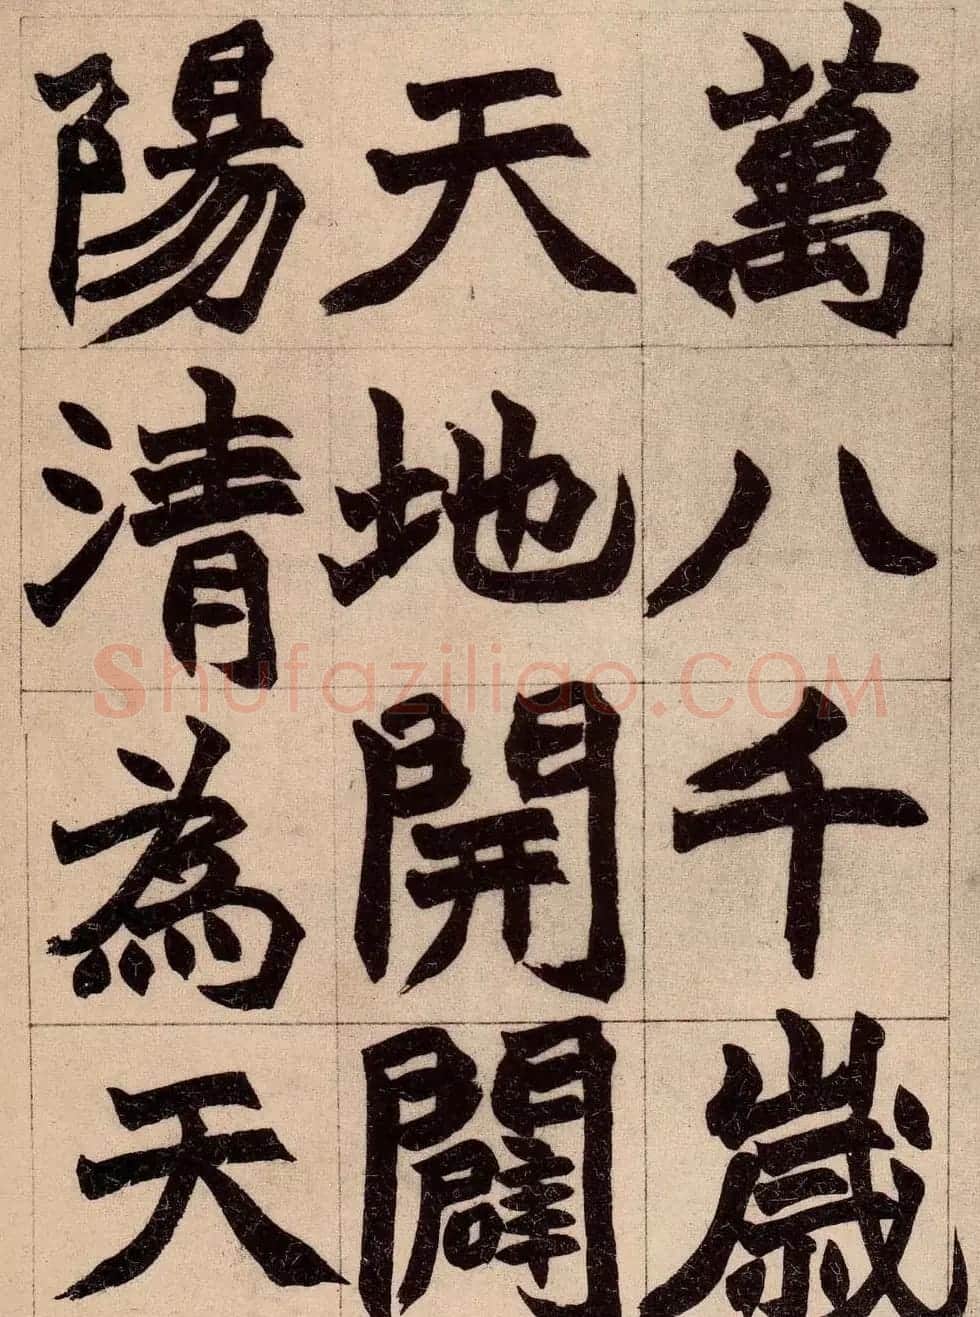 萬八千歲
天地開闢
陽清為天
Shufaziliao.COM